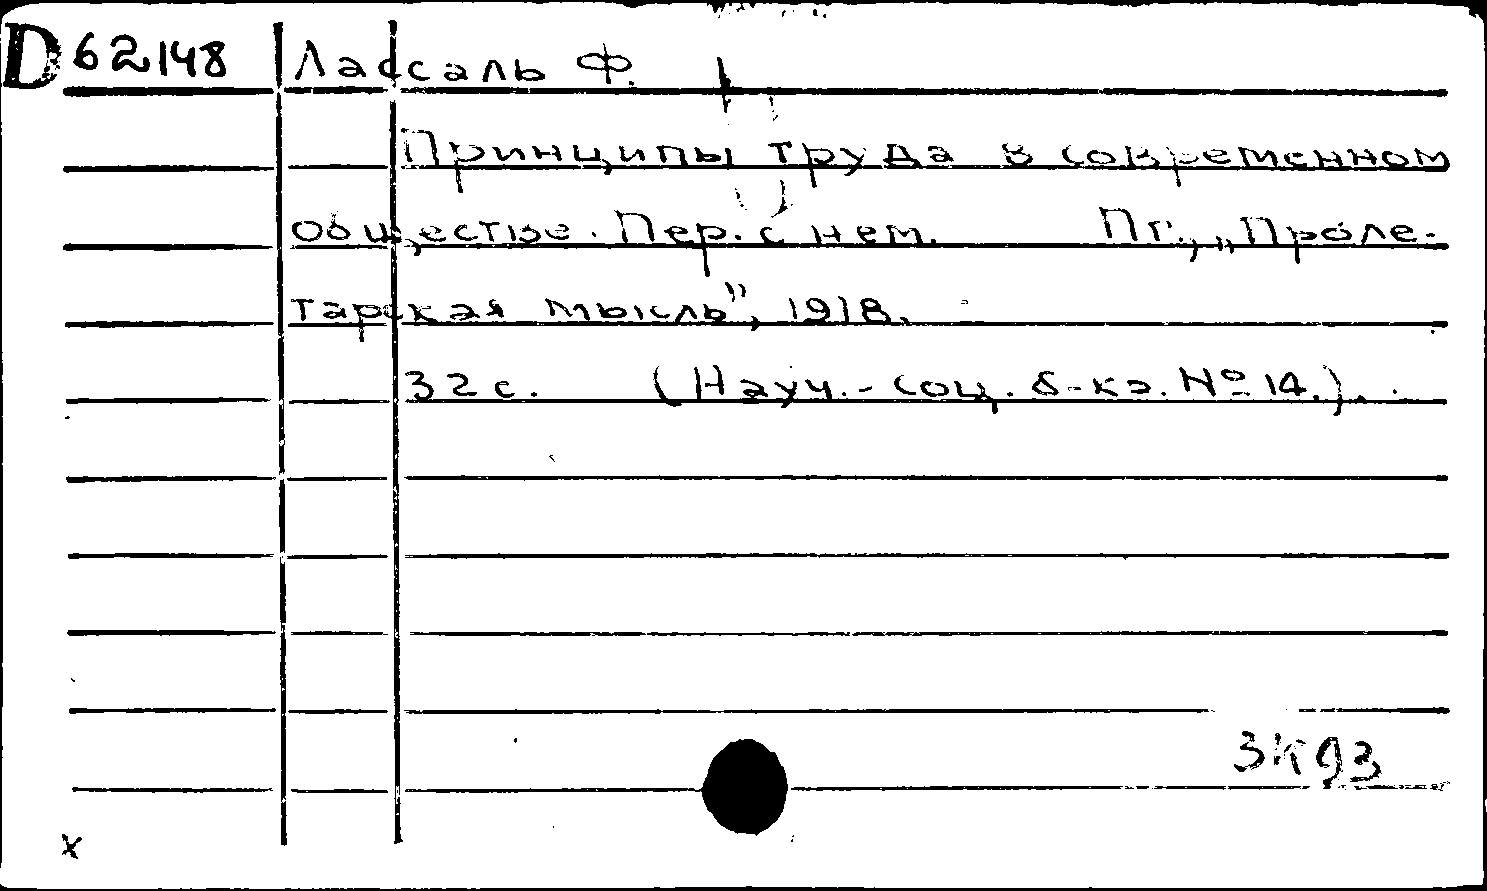 D 62148 Лассаль Ф.
Принципы труда в современном
обществе. Пер. с нем. Пг., „Проле-
тарская мысль", 1918.
32 с. (Науч.-соц. б-ка. № 14.).
ЗК93
x